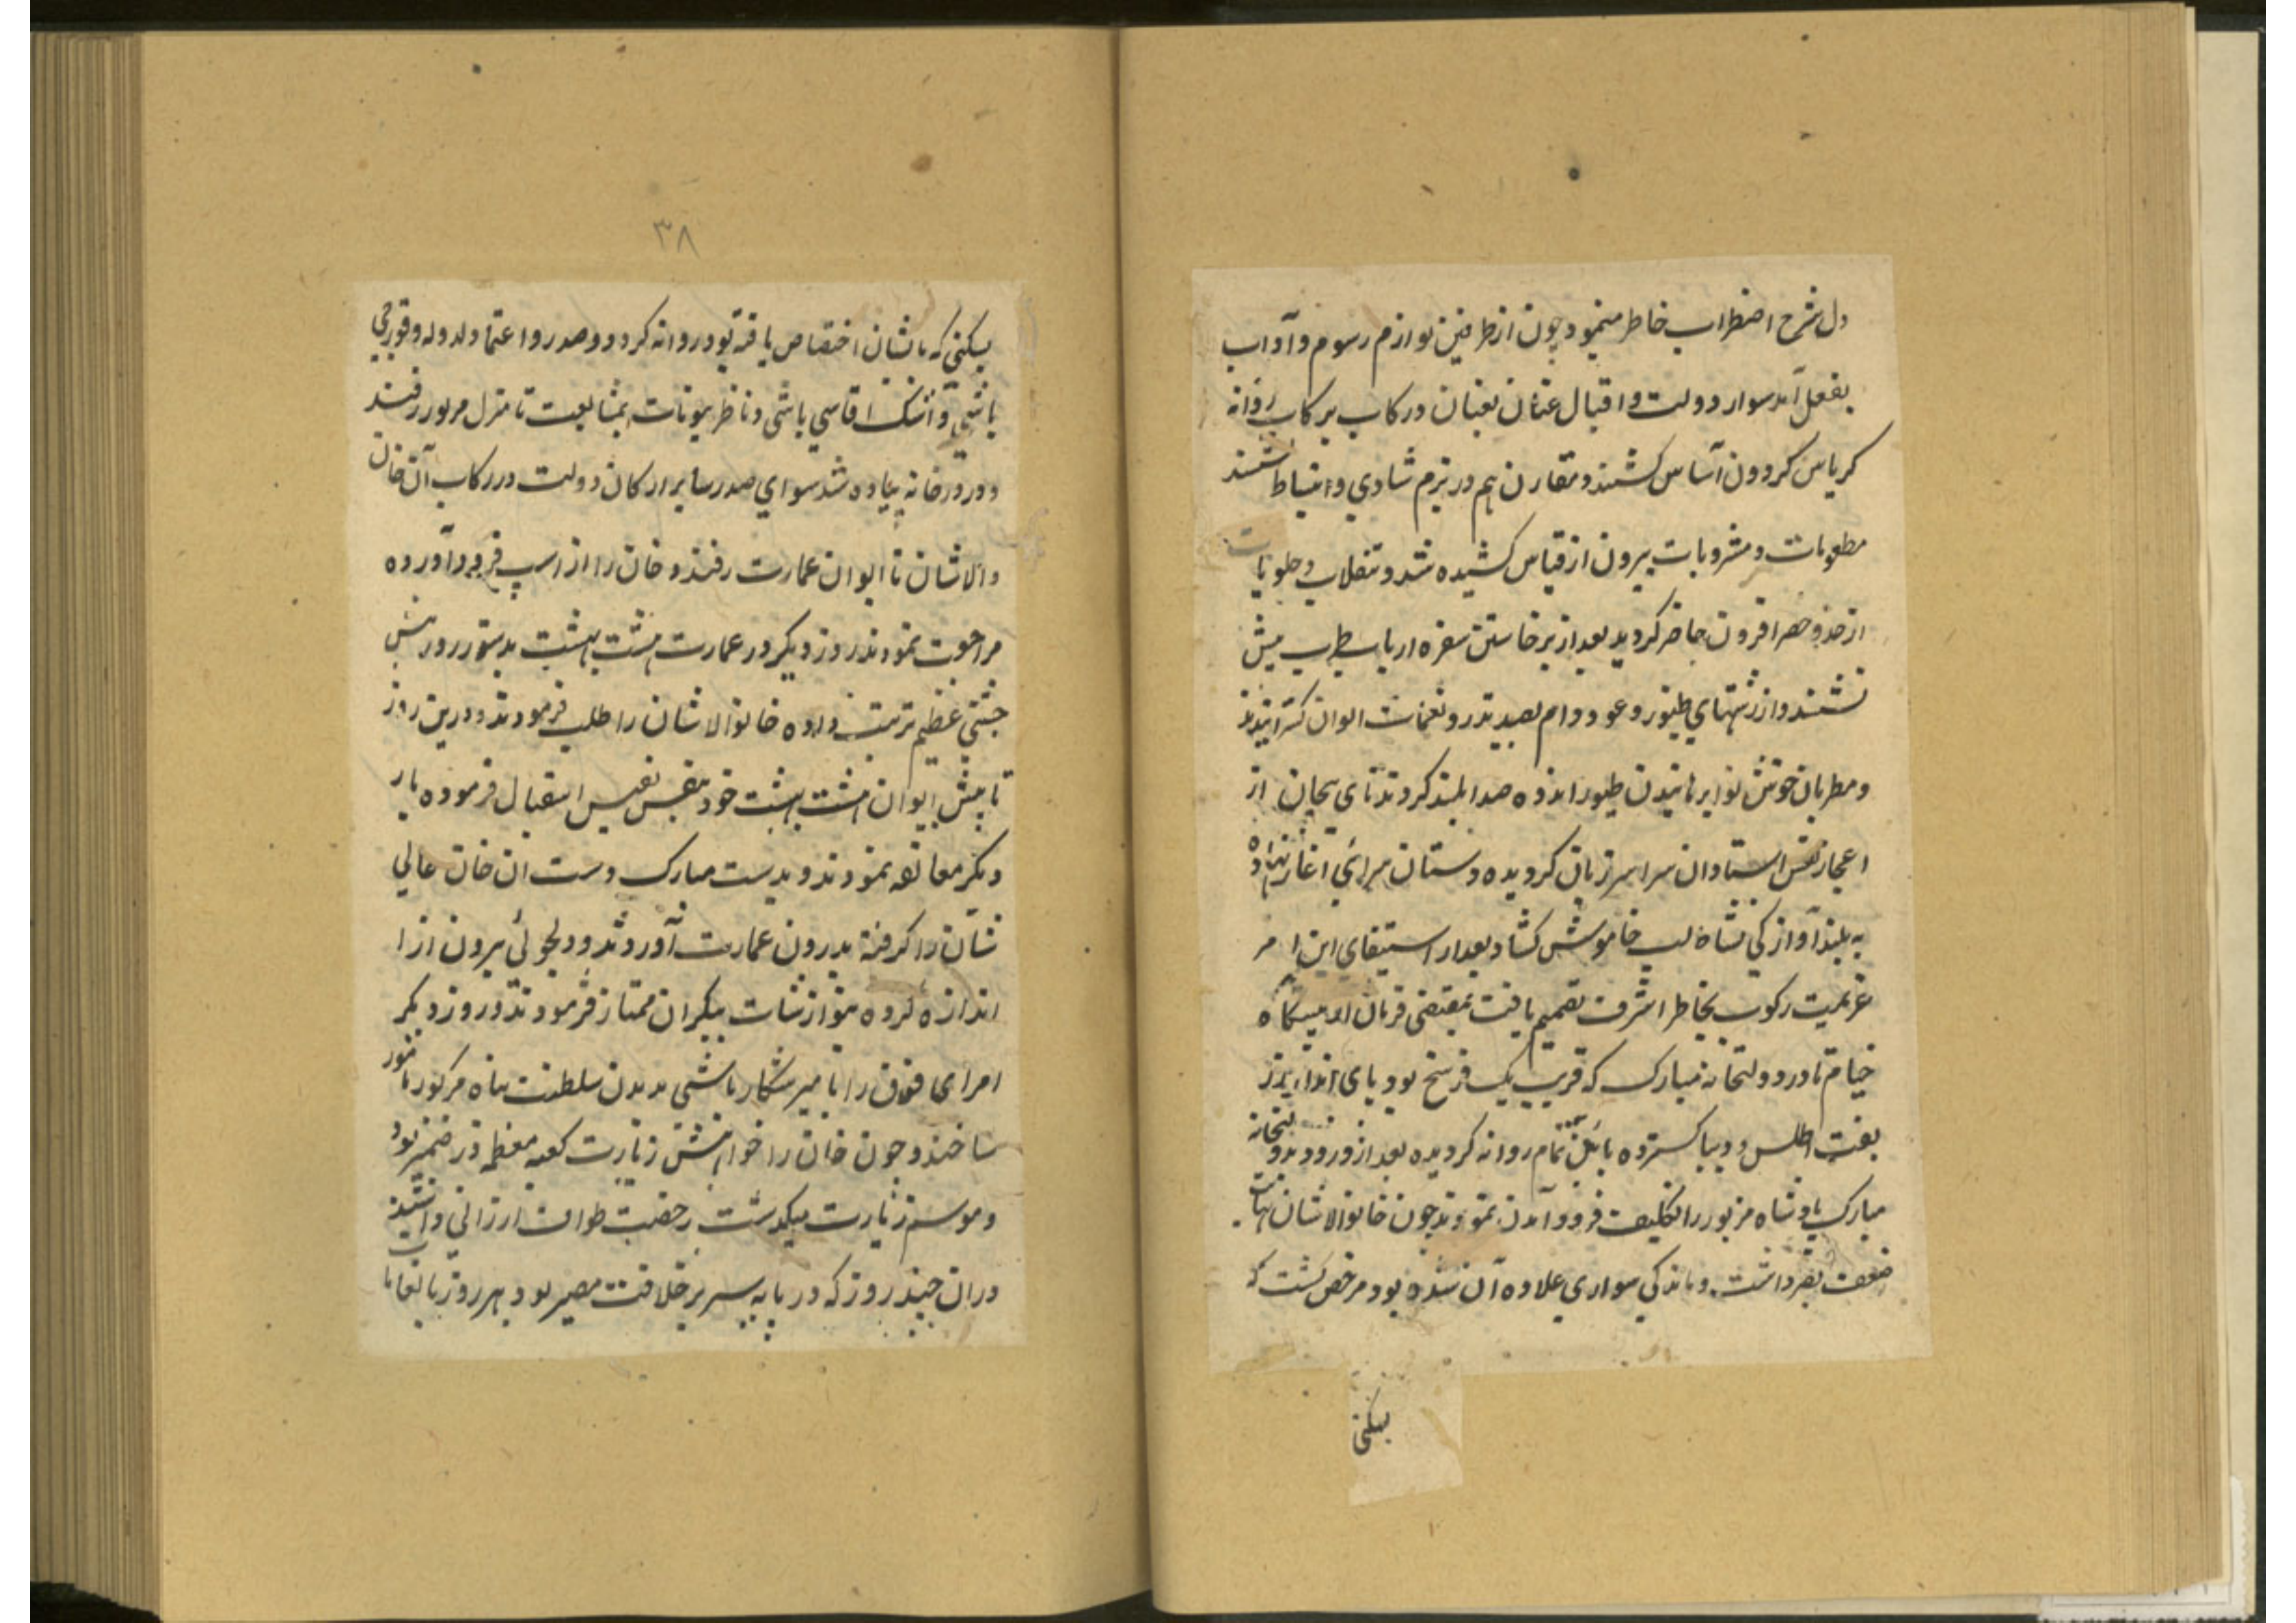 دل شرح اضطراب خاطر مینمود چون از طرفین لوازم رسوم و آداب
بفعل آمد سوار دولت و اقبال عنان بعنان و رکاب بر کاب روانه
کریاس کردون آساس کشتند و مقارن هم در بزم شادی و انبساط نشستند
مطعومات و مشروبات بیرون از قیاس کشیده شد و تنقلات و حلویات
از حد و حصر افزون حاضر کردید بعد از برخاستن سفره ارباب طرب پیش
نشستند و از رشتهای طنبور و عود دام بصید تذرو نغمات الوان کسترانیدند
و مطربان خوش نوا برمانیدن طیور اندوه صدا بلند کردند نای بیجان از
اعجاز نفس استادان سراسر زبان کردیده دستان سرائی آغاز نهاده
به بلند آوازکی شاه لب خاموش کشاد بعد از استیفای این امر
عزیمت رکوب بخاطر اشرف تصمیم یافت بمقتضی فرمان از پیشگاه
خیام تا در دولتخانه مبارک که قریب یک فرسخ بود پای انداز زر
بفت اطلس و دیبا کسترده بائین تمام روانه کردیده بعد از ورود بدولتخانه
مبارک پادشاه مزبور را تکلیف فرود آمدن نمودند چون خان والاشان نهایت
ضعف بصر داشت و ماندکی سواری علاوه آن شده بود مرخص کشت که
بسکنی
۳۸
بسکنی که بایشان اختصاص یافته بود روانه کردد و صدر و اعتمادالدوله و قورچی
باشی و ایشک اقاسی باشی و ناظر بیوتات بمشایعت تا منزل مزبور رفتند
و در درخانه پیاده شده سوای صدر سایر ارکان دولت در رکاب آن خان
والاشان تا ایوان عمارت رفتند و خان را از اسپ فرود آورده
مراجعت نمودند روز دیکر در عمارت هشت بهشت بدستور روز پیش
جشنی عظیم ترتیب داده خان والاشان را طلب فرمودند و درین روز
تا پیش ایوان هشت بهشت خود بنفس نفیس استقبال فرموده بار
دیکر معانقه نمودند و بدست مبارک دست ان خان عالی
شان را کرفته بدرون عمارت آوردند و دلجوئی بیرون از
اندازه کرده بنوازشات بیکران ممتاز فرمودند و روز دیکر
امرای فوق را با میر شکار باشی بدیدن سلطنت پناه مزکور مامور
ساختند و چون خان را خواهش زیارت کعبه معظمه در ضمیر بود
و موسم زیارت میکذشت رخصت طواف ارزانی داشتند
دران چند روز که در پایه سریر خلافت مصیر بود هر روز بانعامات